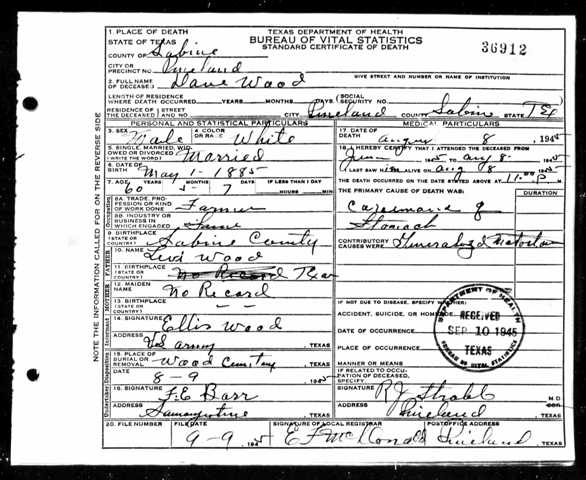 TEXAS DEPARTMENT OF HEALTH
BUREAU OF VITAL STATISTICS
STANDARD CERTIFICATE OF DEATH
36912
NOTE THE INFORMATION CALLED FOR ON THE REVERSE SIDE
1. PLACE OF DEATH
STATE OF TEXAS
COUNTY OF Sabine
CITY OR PRECINCT NO. Pineland
GIVE STREET AND NUMBER OR NAME OF INSTITUTION
2. FULL NAME OF DECEASED Dave Wood
LENGTH OF RESIDENCE WHERE DEATH OCCURRED YEARS MONTHS DAYS SOCIAL SECURITY NO.
RESIDENCE OF THE DECEASED STREET AND NO. CITY Pineland COUNTY Sabine STATE Tex
PERSONAL AND STATISTICAL PARTICULARS
3. SEX Male 4. COLOR OR RACE White
5. SINGLE, MARRIED, WIDOWED OR DIVORCED (WRITE THE WORD) Married
6. DATE OF BIRTH May 1 - 1885
7. AGE 60 7 HOURS MIN.
8A. TRADE, PROFESSION OR KIND OF WORK DONE Farmer
8B. INDUSTRY OR BUSINESS IN WHICH ENGAGED
9. BIRTHPLACE (STATE OR COUNTRY) Sabine County
FATHER
10. NAME Levi Wood
11. BIRTHPLACE (STATE OR COUNTRY) No Record Texas
MOTHER
12. MAIDEN NAME No Record
13. BIRTHPLACE (STATE OR COUNTRY) - -
Informant
14. SIGNATURE Ellis Wood
ADDRESS US army, TEXAS
Undertaker Disposition
15. PLACE OF BURIAL OR REMOVAL Wood Cemetery, TEXAS
DATE 8 - 9 1945
16. SIGNATURE F.E Barr
ADDRESS Sanaugustine, TEXAS
MEDICAL PARTICULARS
17. DATE OF DEATH August 8, 1945
18. I HEREBY CERTIFY THAT I ATTENDED THE DECEASED FROM
June 1945 TO Aug 8 - 1945
I LAST SAW him ALIVE ON Aug 8 1945
THE DEATH OCCURRED ON THE DATE STATED ABOVE AT 11:00 P M
THE PRIMARY CAUSE OF DEATH WAS: DURATION
Carcinoma of
Stomach
CONTRIBUTORY Generalized
IF NOT DUE TO DISEASE, SPECIFY WHETHER:
ACCIDENT, SUICIDE, OR HOMICIDE
DATE OF OCCURRENCE
PLACE OF OCCURRENCE
MANNER OR MEANS
IF RELATED TO OCCUPATION OF DECEASED, SPECIFY
DEPARTMENT OF HEALTH
RECEIVED
SEP 10 1945
TEXAS
BUREAU OF VITAL STATISTICS
SIGNATURE M D
ADDRESS Pineland, TEXAS
20. FILE NUMBER FILE DATE SIGNATURE OF LOCAL REGISTRAR POSTOFFICE ADDRESS
9-9 1945 E F McDonald Pineland, TEXAS